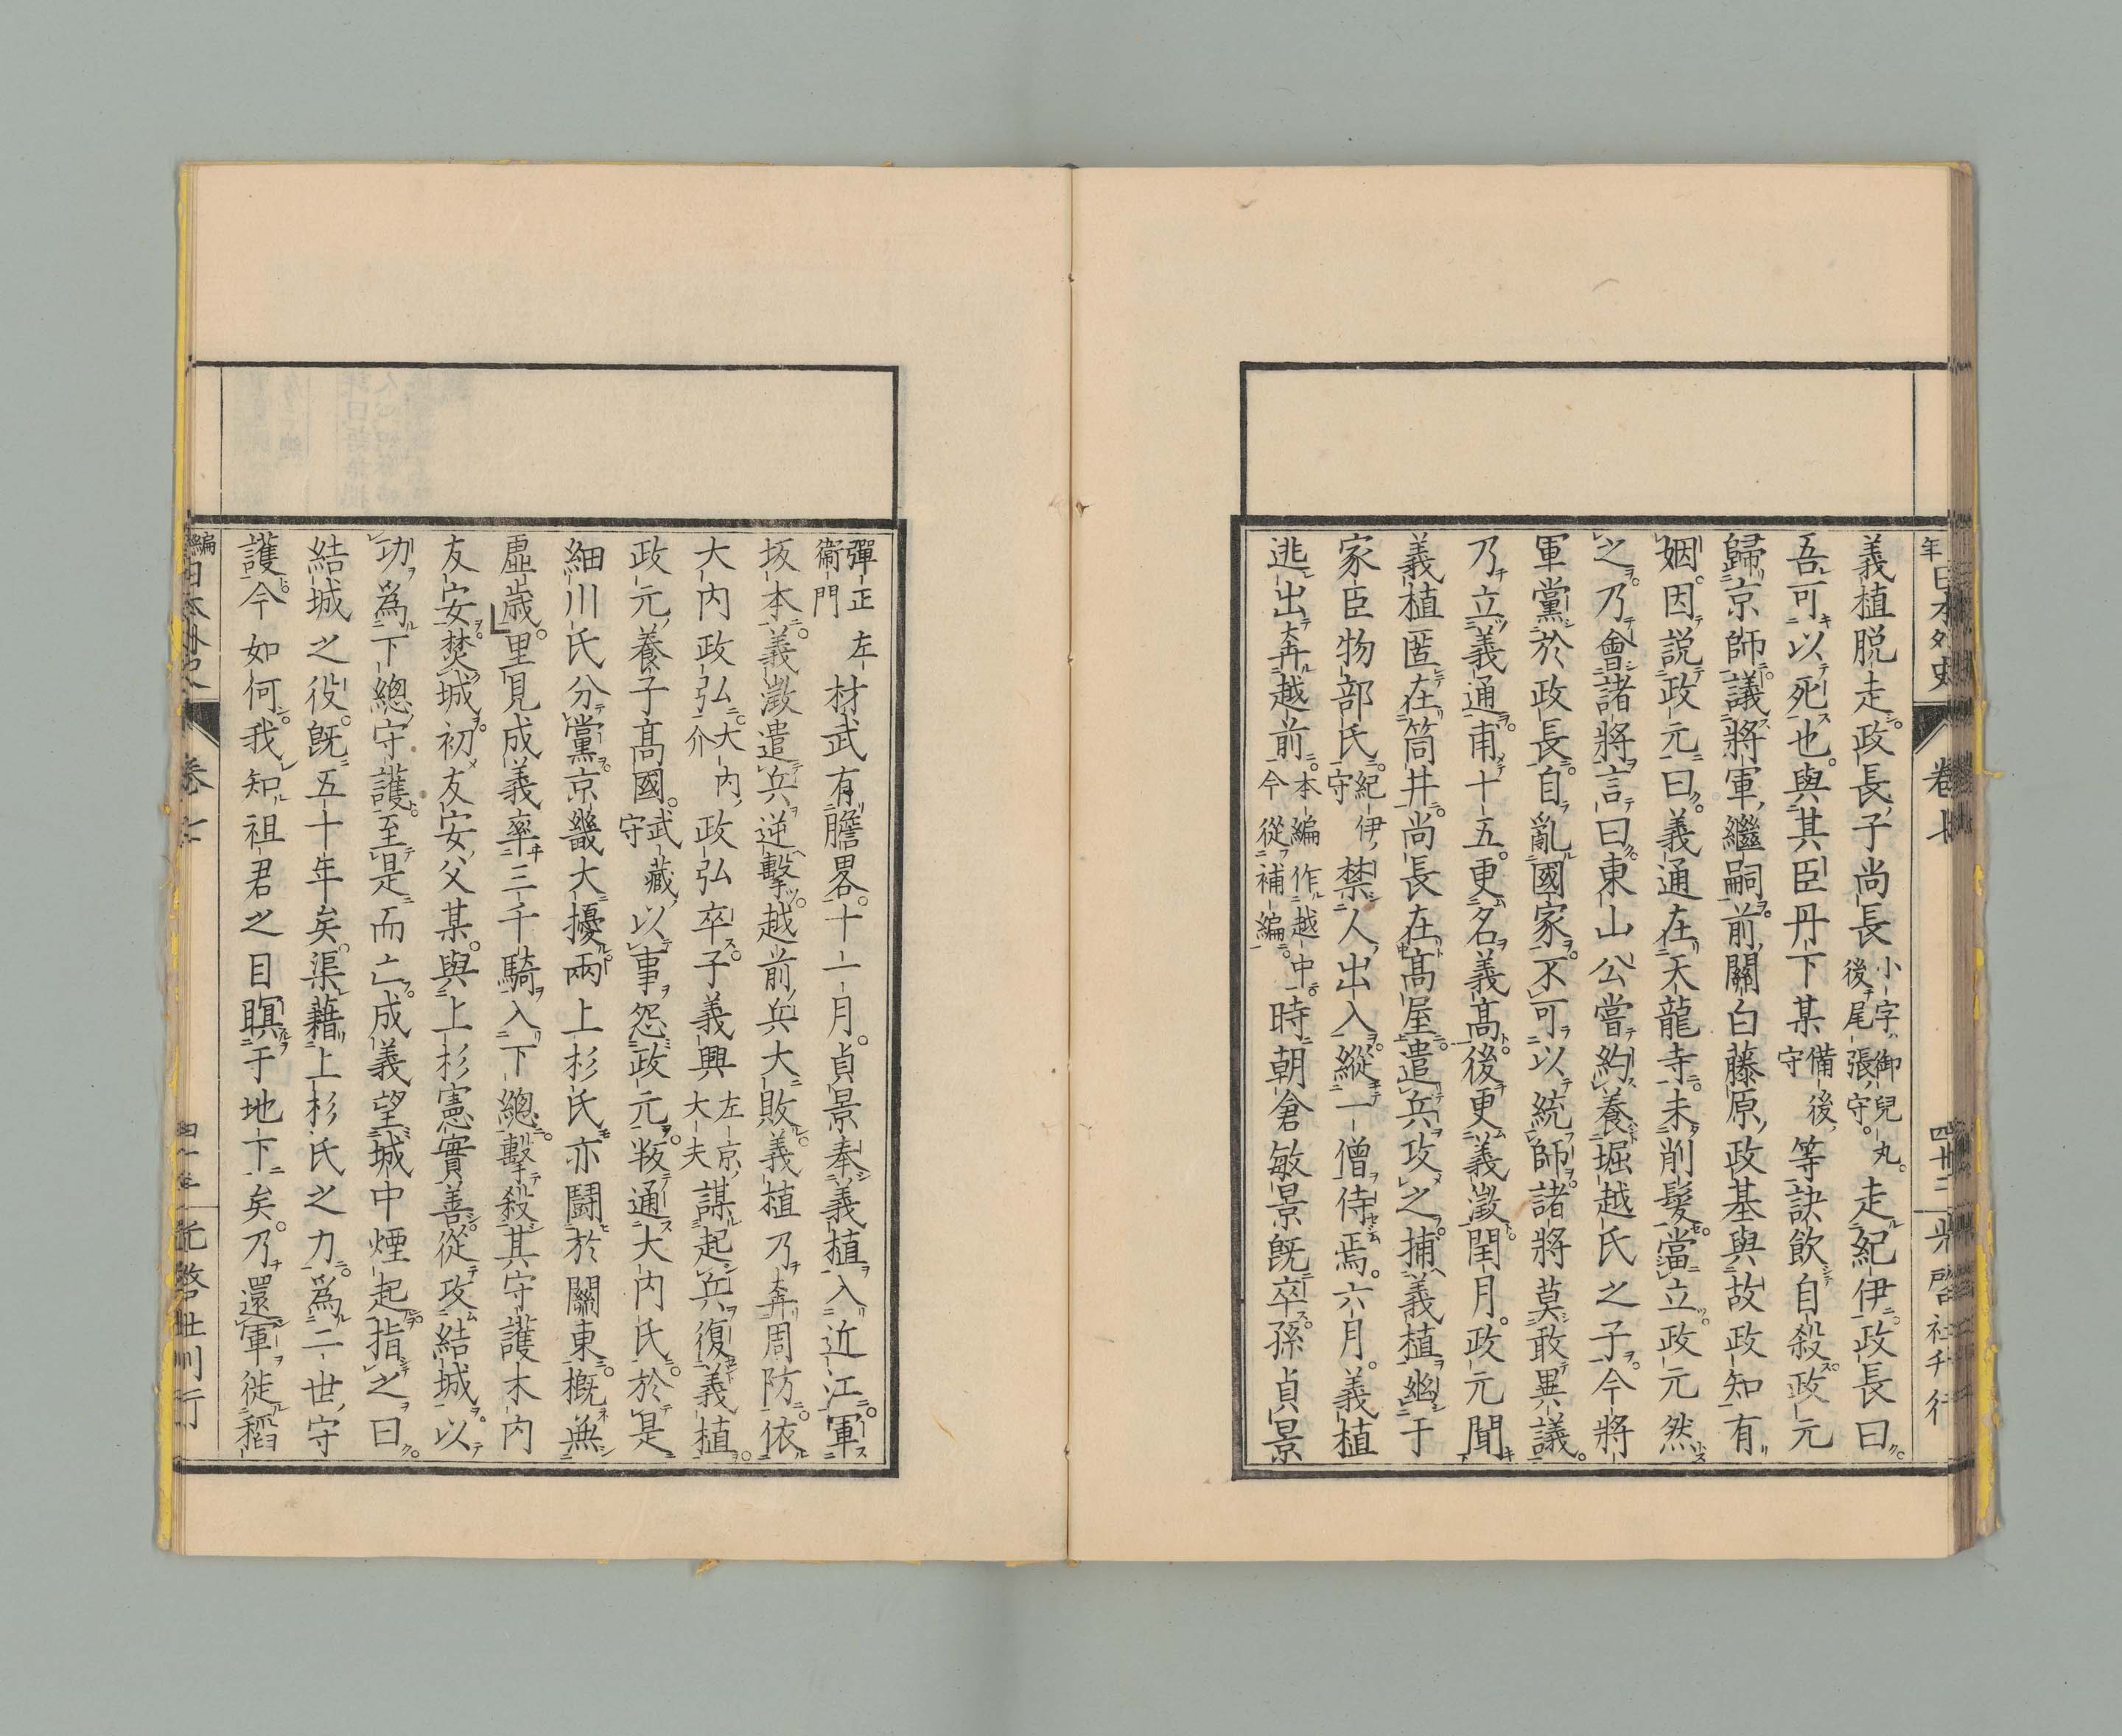 年日本外史 卷七 四十二 光啓社刊行
義植脱走。政長子尚長小字御兒丸。後尾張守。走紀伊。政長曰。
吾可以死也。與其臣丹下某備後守等訣飲自殺。政元
歸京師。議將軍繼嗣。前關白藤原政基與故政知有
姻。因説政元曰。義通在天龍寺。未削髮。當立。政元然
之。乃會諸將言曰。東山公嘗約養堀越氏之子。今將
軍黨於政長。自亂國家。不可以統師。諸將莫敢異議。
乃立義通。甫十五。更名義高。後更義澄。閏月。政元聞
義植匿在筒井。尚長在高屋。遣兵攻之。捕義植幽于
家臣物部氏。紀伊守禁人出入。縱一僧侍焉。六月。義植
逃出奔越前。本編作越中。今從補編。時朝倉敏景既卒。孫貞景
彈正左衞門材武有膽畧。十一月。貞景奉義植入近江。軍
坂本。義澄遣兵逆擊。越前兵大敗。義植乃奔周防。依
大内政弘。大内介政弘卒。子義興左京大夫謀起兵復義植。
政元養子高國。武藏守以事怨政元。叛通大内氏。於是
細川氏分黨。京畿大擾。兩上杉氏亦鬪於關東。概無
虛歲。里見成義率三千騎入下總。擊殺其守護木内
友安。焚城。初友安父某。與上杉憲實善。從攻結城。以
功爲下總守護。至是而亡。成義望城中煙起。指之曰。
結城之役。既五十年矣。渠藉上杉氏之力。爲二世守
護。今如何。我知祖君之目瞑于地下矣。乃還軍徙稻
編 日本外史 卷七 光啓社刊行